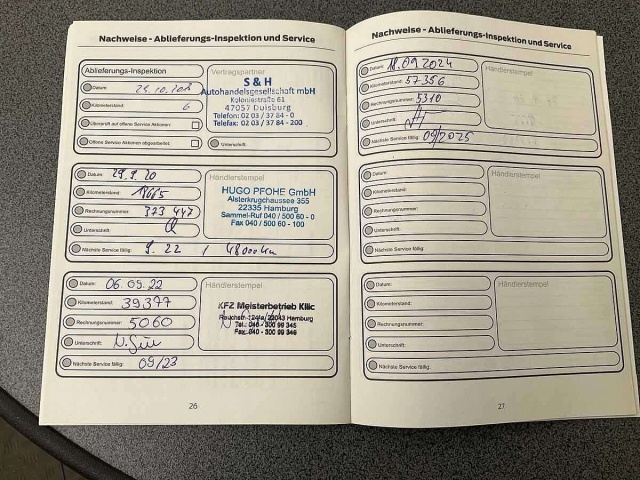 Nachweise - Ablieferungs-Inspektion und Service
Ablieferungs-Inspektion
Datum:
Kilometerstand: 6
Überprüft auf offene Service Aktionen:
Offene Service Aktionen abgearbeitet:
Vertragspartner
S & H
Autohandelsgesellschaft mbH
Koloniestraße 61
47057 Duisburg
Telefon: 02 03 / 37 84 - 0
Telefax: 02 03 / 37 84 - 200
Unterschrift:
Datum: 29.9.20
Kilometerstand: 18665
Rechnungsnummer: 373 447
Unterschrift:
Nächste Service fällig: 9.22 / 48000km
Händlerstempel
HUGO PFOHE GmbH
Alsterkrugchaussee 355
22335 Hamburg
Sammel-Ruf 040 / 500 60 - 0
Fax 040 / 500 60 - 100
Datum: 06.09.22
Kilometerstand: 39377
Rechnungsnummer: 5060
Unterschrift:
Nächste Service fällig: 09/23
Händlerstempel
KFZ Meisterbetrieb Kilic
22043 Hamburg
Tel.: 040 - 300 99 345
Fax: 040 - 300 99 346
26
Nachweise - Ablieferungs-Inspektion und Service
Datum: 18.09.2024
Kilometerstand: 57356
Rechnungsnummer: 5310
Unterschrift:
Nächste Service fällig: 09/2025
Händlerstempel
Datum:
Kilometerstand:
Rechnungsnummer:
Unterschrift:
Nächste Service fällig:
Händlerstempel
Datum:
Kilometerstand:
Rechnungsnummer:
Unterschrift:
Nächste Service fällig:
Händlerstempel
27